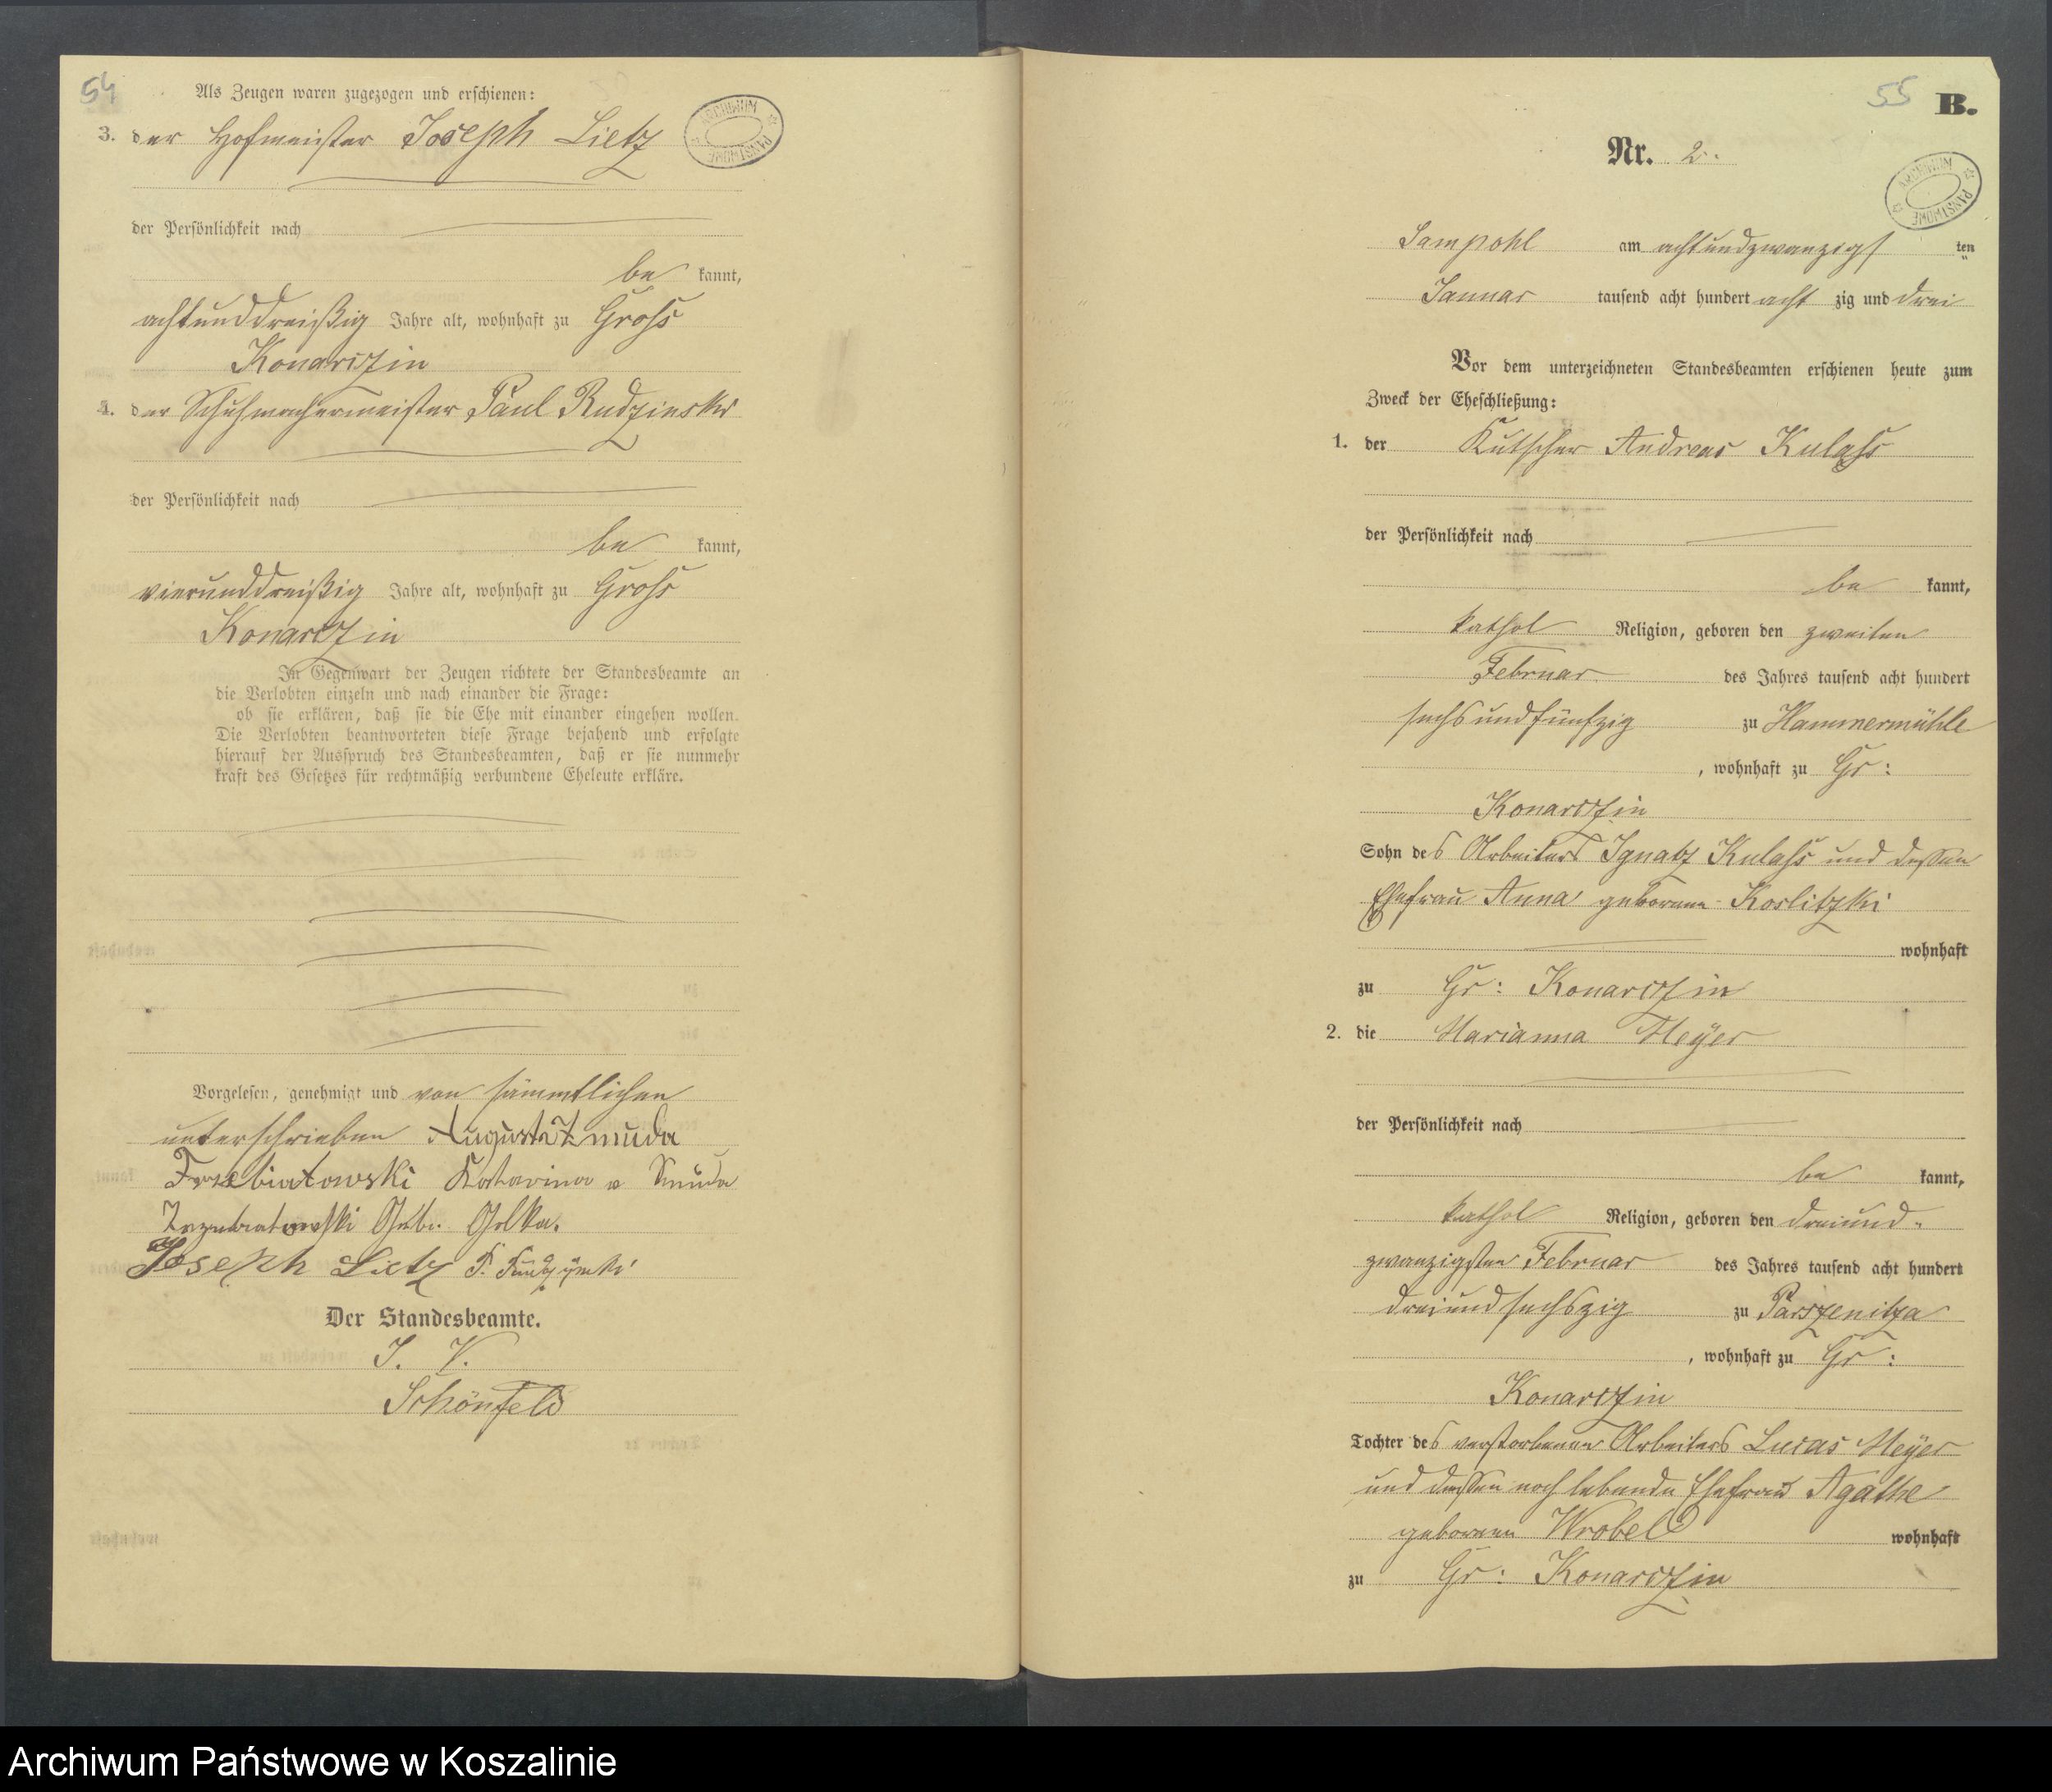 54
Als Zeugen waren zugezogen und erschienen:
ARCHIWUM PAŃSTWOWE
3. der Hofmeister Joseph Lietz
der Persönlichkeit nach
be kannt,
achtunddreißig Jahre alt, wohnhaft zu Gross
Konarczin
4. der Schuhmachermeister Paul Rudzinski
der Persönlichkeit nach
be kannt,
vierunddreißig Jahre alt, wohnhaft zu Gross
Konarczin
In Gegenwart der Zeugen richtete der Standesbeamte an
die Verlobten einzeln und nach einander die Frage:
ob sie erklären, daß sie die Ehe mit einander eingehen wollen.
Die Verlobten beantworteten diese Frage bejahend und erfolgte
hierauf der Ausspruch des Standesbeamten, daß er sie nunmehr
kraft des Gesetzes für rechtmäßig verbundene Eheleute erkläre.
Vorgelesen, genehmigt und von sämmtlichen
unterschrieben August Zmuda
Trzebiatowski Katarina v Smuda
Trzebiatowski Geb. Golka.
Joseph Lietz P.
Der Standesbeamte.
I. V.
Schönfeld
55
B.
Nr. 2.
ARCHIWUM PAŃSTWOWE
Sampohl am achtundzwanzigs ten
Januar tausend acht hundert acht zig und drei
Vor dem unterzeichneten Standesbeamten erschienen heute zum
Zweck der Eheschließung:
1. der Kutscher Andreas Kulass
der Persönlichkeit nach
be kannt,
kathol Religion, geboren den zweiten
Februar des Jahres tausend acht hundert
sechsundfünfzig zu Hammermühle
, wohnhaft zu Gr:
Konarczin
Sohn des Arbeiters Ignatz Kulass und dessen
Ehefrau Anna geborene Koslitzki
wohnhaft
zu Gr: Konarczin
2. die Marianna Meÿer
der Persönlichkeit nach
be kannt,
kathol Religion, geboren den dreiund-
zwanzigsten Februar des Jahres tausend acht hundert
dreiundsechszig zu Parszenitza
, wohnhaft zu Gr:
Konarczin
Tochter des verstorbenen Arbeiters Lucas Meÿer
und dessen noch lebende Ehefrau Agathe
geborene Wrobel wohnhaft
zu Gr: Konarczin
Archiwum Państwowe w Koszalinie